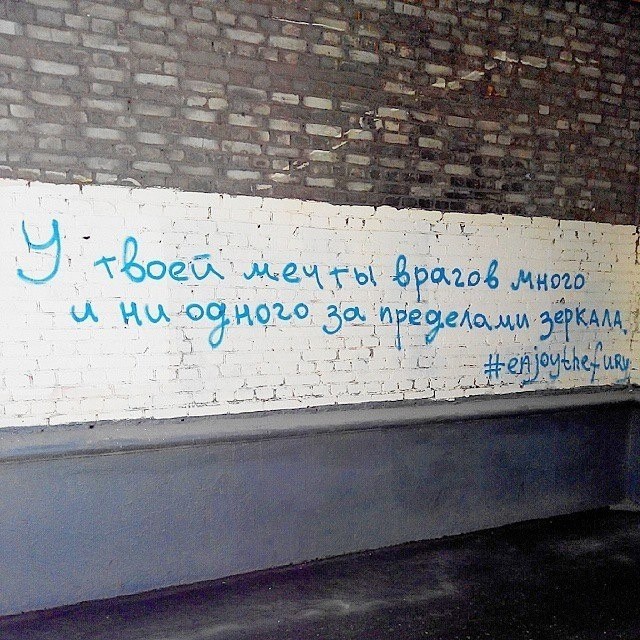 У твоей мечты врагов много
и ни одного за пределами зеркала.
#enjoythefury